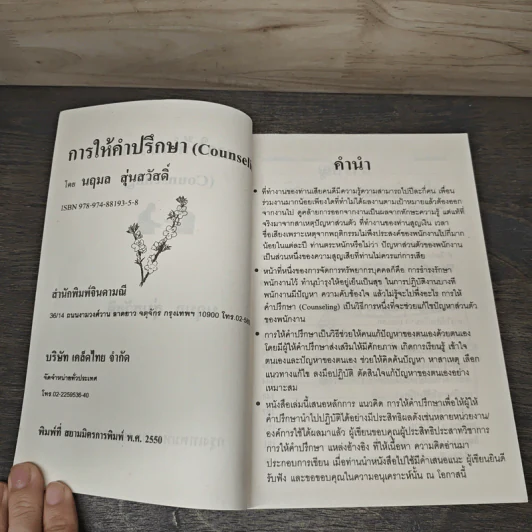 การให้คำปรึกษา (Counsel
โดย นฤมล สุ่นสวัสดิ์
ISBN 978-974-88193-5-8
สำนักพิมพ์จินดามณี
36/14 ถนนงามวงศ์วาน ลาดยาว จตุจักร กรุงเทพฯ 10900 โทร.02-58
บริษัท เคล็ดไทย จำกัด
จัดจำหน่ายทั่วประเทศ
โทร.02-2259536-40
พิมพ์ที่ สยามมิตรการพิมพ์ พ.ศ. 2550
คำนำ
ที่ทำงานของท่านเสียคนดีมีความรู้ความสามารถไปปีละกี่คน เพื่อน
ร่วมงานมากน้อยเพียงใดที่ทำไม่ได้ผลงานตามเป้าหมายแล้วต้องออก
จากงานไป ดูคล้ายการออกจากงานเป็นผลจากทักษะความรู้ แต่แท้ที่
จริงมาจากสาเหตุปัญหาส่วนตัว ที่ทำงานของท่านสูญเงิน เวลา
ชื่อเสียงเพราะเหตุจากพฤติกรรมไม่พึงประสงค์ของพนักงานไปกี่มาก
น้อยในแต่ละปี ท่านตระหนักหรือไม่ว่า ปัญหาส่วนตัวของพนักงาน
เป็นส่วนหนึ่งของความสูญเสียที่ท่านไม่ควรแก่การเสีย
หน้าที่หนึ่งของการจัดการทรัพยากรบุคคลก็คือ การธำรงรักษา
พนักงานไว้ ทำนุบำรุงให้อยู่เย็นเป็นสุข ในการปฏิบัติงานบางที
พนักงานมีปัญหา ความคับข้องใจ แล้วไม่รู้จะไปพึ่งอะไร การให้
คำปรึกษา (Counseling) เป็นวิธีการหนึ่งที่จะช่วยแก้ไขปัญหาส่วนตัว
ของพนักงาน
การให้คำปรึกษาเป็นวิธีช่วยให้คนแก้ปัญหาของตนเองด้วยตนเอง
โดยมีผู้ให้คำปรึกษาส่งเสริมให้มีศักยภาพ เกิดการเรียนรู้ เข้าใจ
ตนเองและปัญหาของตนเอง ช่วยให้คิดค้นปัญหา หาสาเหตุ เลือก
แนวทางแก้ไข ลงมือปฏิบัติ ตัดสินใจแก้ปัญหาของตนเองอย่าง
เหมาะสม
หนังสือเล่มนี้เสนอหลักการ แนวคิด การให้คำปรึกษาเพื่อให้ผู้ให้
คำปรึกษานำไปปฏิบัติได้อย่างมีประสิทธิผลดังเช่นหลายหน่วยงาน/
องค์การใช้ได้ผลมาแล้ว ผู้เขียนขอบคุณผู้ประสิทธิประสาทวิชาการ
การให้คำปรึกษา แหล่งอ้างอิง ที่ให้เนื้อหา ความคิดอ่านมา
ประกอบการเขียน เมื่อท่านนำหนังสือไปใช้มีคำเสนอแนะ ผู้เขียนยินดี
รับฟัง และขอขอบคุณในความอนุเคราะห์นั้น ณ โอกาสนี้